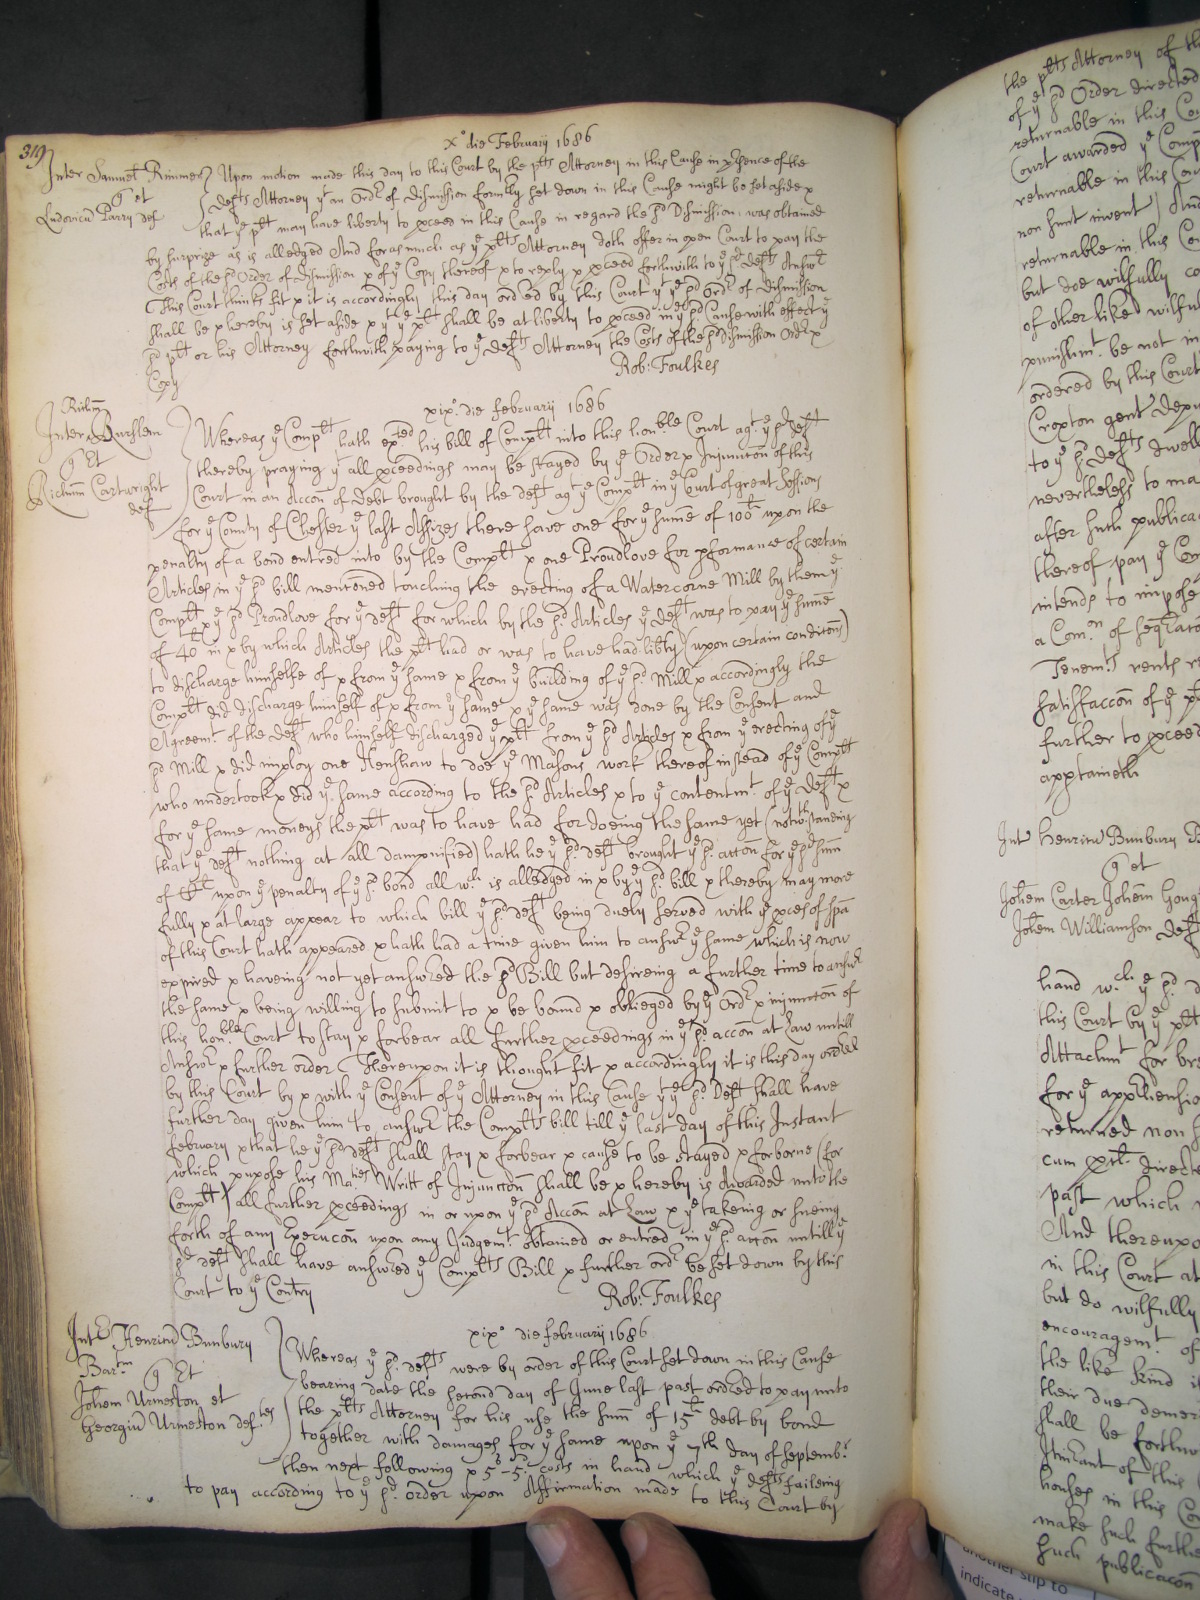 319
x° die February 1686
Inter Samuel Rimmer
q et
Ludovicu Parry def
Upon motion made this day to this Court by the plts Attorney in this Cause in prsence of the
defts Attorney yt an Ordr of dismission formrly set down in this Cause might be set aside &
that ye plt may have liberty to pceed in this Cause in regard the sd Dismission was obtained
by surprize as is alledged And forasmuch as ye plts Attorney doth offer in open Court to pay the
Costs of the sd Order of dismission & of ye Copy thereof & to reply & pceed forthwith to ye sd defts Answr
This Court thinks fit & it is accordingly this day ordred by this Court yt ye sd ordr of dismission
shall be & hereby is set aside & yt ye plt shall be at liberty to pceed in ye sd Cause with effect ye
sd plt or his Attorney forthwith paying to ye defts Attorney the Costs of the sd dismission Ordr &
Copy
Rob: Foulkes
xix° die february 1686
Inter
q Et
Ricũm Cartwright
def
Whereas ye Complt hath exted his bill of Complt into this honble Court agt ye sd deft
thereby praying yt all pceedings may be stayed by ye Order & Injunction of this
Court in an Accon of Debt brought by the deft agt ye Complt in ye Court of great Sessions
for ye County of Chester ye last Assizes there have one for ye summe of 100l upon the
penalty of a bond entred into by the Complt & one Proudlove for pformance of certain
Articles in ye sd bill mencõned touching the erecting of a Watercorne Mill by them ye
Complt & ye sd Proudlove for ye deft for which by the sd Articles ye deft was to pay ye summe
of 40l in & by which Articles the plt had or was to have had libty (upon certain conditons)
to discharge himselfe of & from ye same & from ye building of ye sd Mill & accordingly the
Complt did discharge himself of & from ye same & ye same was done by the Consent and
Agreemt of the deft who himself discharged ye plt from ye sd Articles & from ye erecting of ye
sd Mill & did imploy one Henshaw to doe ye Masons work thereof instead of ye Complt
who undertook & did ye same according to the sd Articles & to ye contentmt of ye deft &
for ye same moneys the plt was to have had for doeing the same yet (notwthstanding
that ye deft nothing at all dampnified) hath he ye sd deft brought ye sd accon for ye sd sum
of Cl upon ye penalty of ye sd bond all wch is alledged in & by ye sd bill & thereby may more
fully & at large appear to which bill ye sd deft being duely served with ye pces of spa
of this Court hath appeared & hath had a time given him to answr ye same which is now
expired & haveing not yet answred the sd Bill but desireing a further time to answr
the same & being willing to submit to & be bound & oblieged by ye Ordr & injunction of
this honble Court to stay & forbear all further pceedings in ye sd accon at Law untill
Answr & further order Thereupon it is thought fit & accordingly it is this day ordred
by this Court by & with ye Consent of ye Attorney in this Cause yt ye sd Deft shall have
further day given him to answr the Complts bill till ye last day of this Instant
february & that he ye sd deft shall stay & forbear & cause to be stayed & forborne (for
which purpose his Maties Writt of Injunction shall be & hereby is Awarded unto the
Complt) all further pceedings in or upon ye sd Accon at Law & ye takeing or sueing
forth of any Execucon upon any Judgemt obtained or entred in ye sd accon untill ye
sd deft shall have answred ye Complts Bill & further ordr be set down by this
Court to ye Contry
Rob: Foulkes
xix° die february 1686
Intr Henricu Bunbury
Bartm q Et
Johem Urmeston et
Georgiu Urmeston deftes
Whereas ye sd defts were by order of this Court set down in this Cause
bearing date the second day of June last past ordred to pay unto
the plts Attorney for his use the sum of 15l debt by bond
together with damages for ye same upon ye 7th day of septembr
then next following & 5s-5d costs in hand which ye defts faileing
to pay according to ye sd order upon Affirmation made to this Court by
the plts Attorney of th
of ye sd Order directed
returnable in this Co
Court awarded ye Comp
returnable in this Cou
non sunt invent) And
returnable in this Co
but doe wilfully co
of other like wilfu
punishmt be not in
ordered by this Court
Croxton gent depu
to ye sd defts dwell
nevertheless to ma
after such publica
thereof pay ye Co
intends to impose
a Comn of Seqracõ
Tenemts rents re
satisfaccon of ye pl
further to pceed
apptaineth
Intr Henricu Bunbury B
q et
Johem Carter Johem Goug
Johem Williamson def
hand wch ye sd d
this Court by ye plt
Attachmt for bre
for ye apprhensio
returned non s
cum pcl directe
past which
And thereupo
in this Court at
but do wilfully
encouragemt of
the like kind i
their due demer
shall be forthw
Itinrant of this
houses in this Co
make such furthe
such publicacon
another slip to
indicate